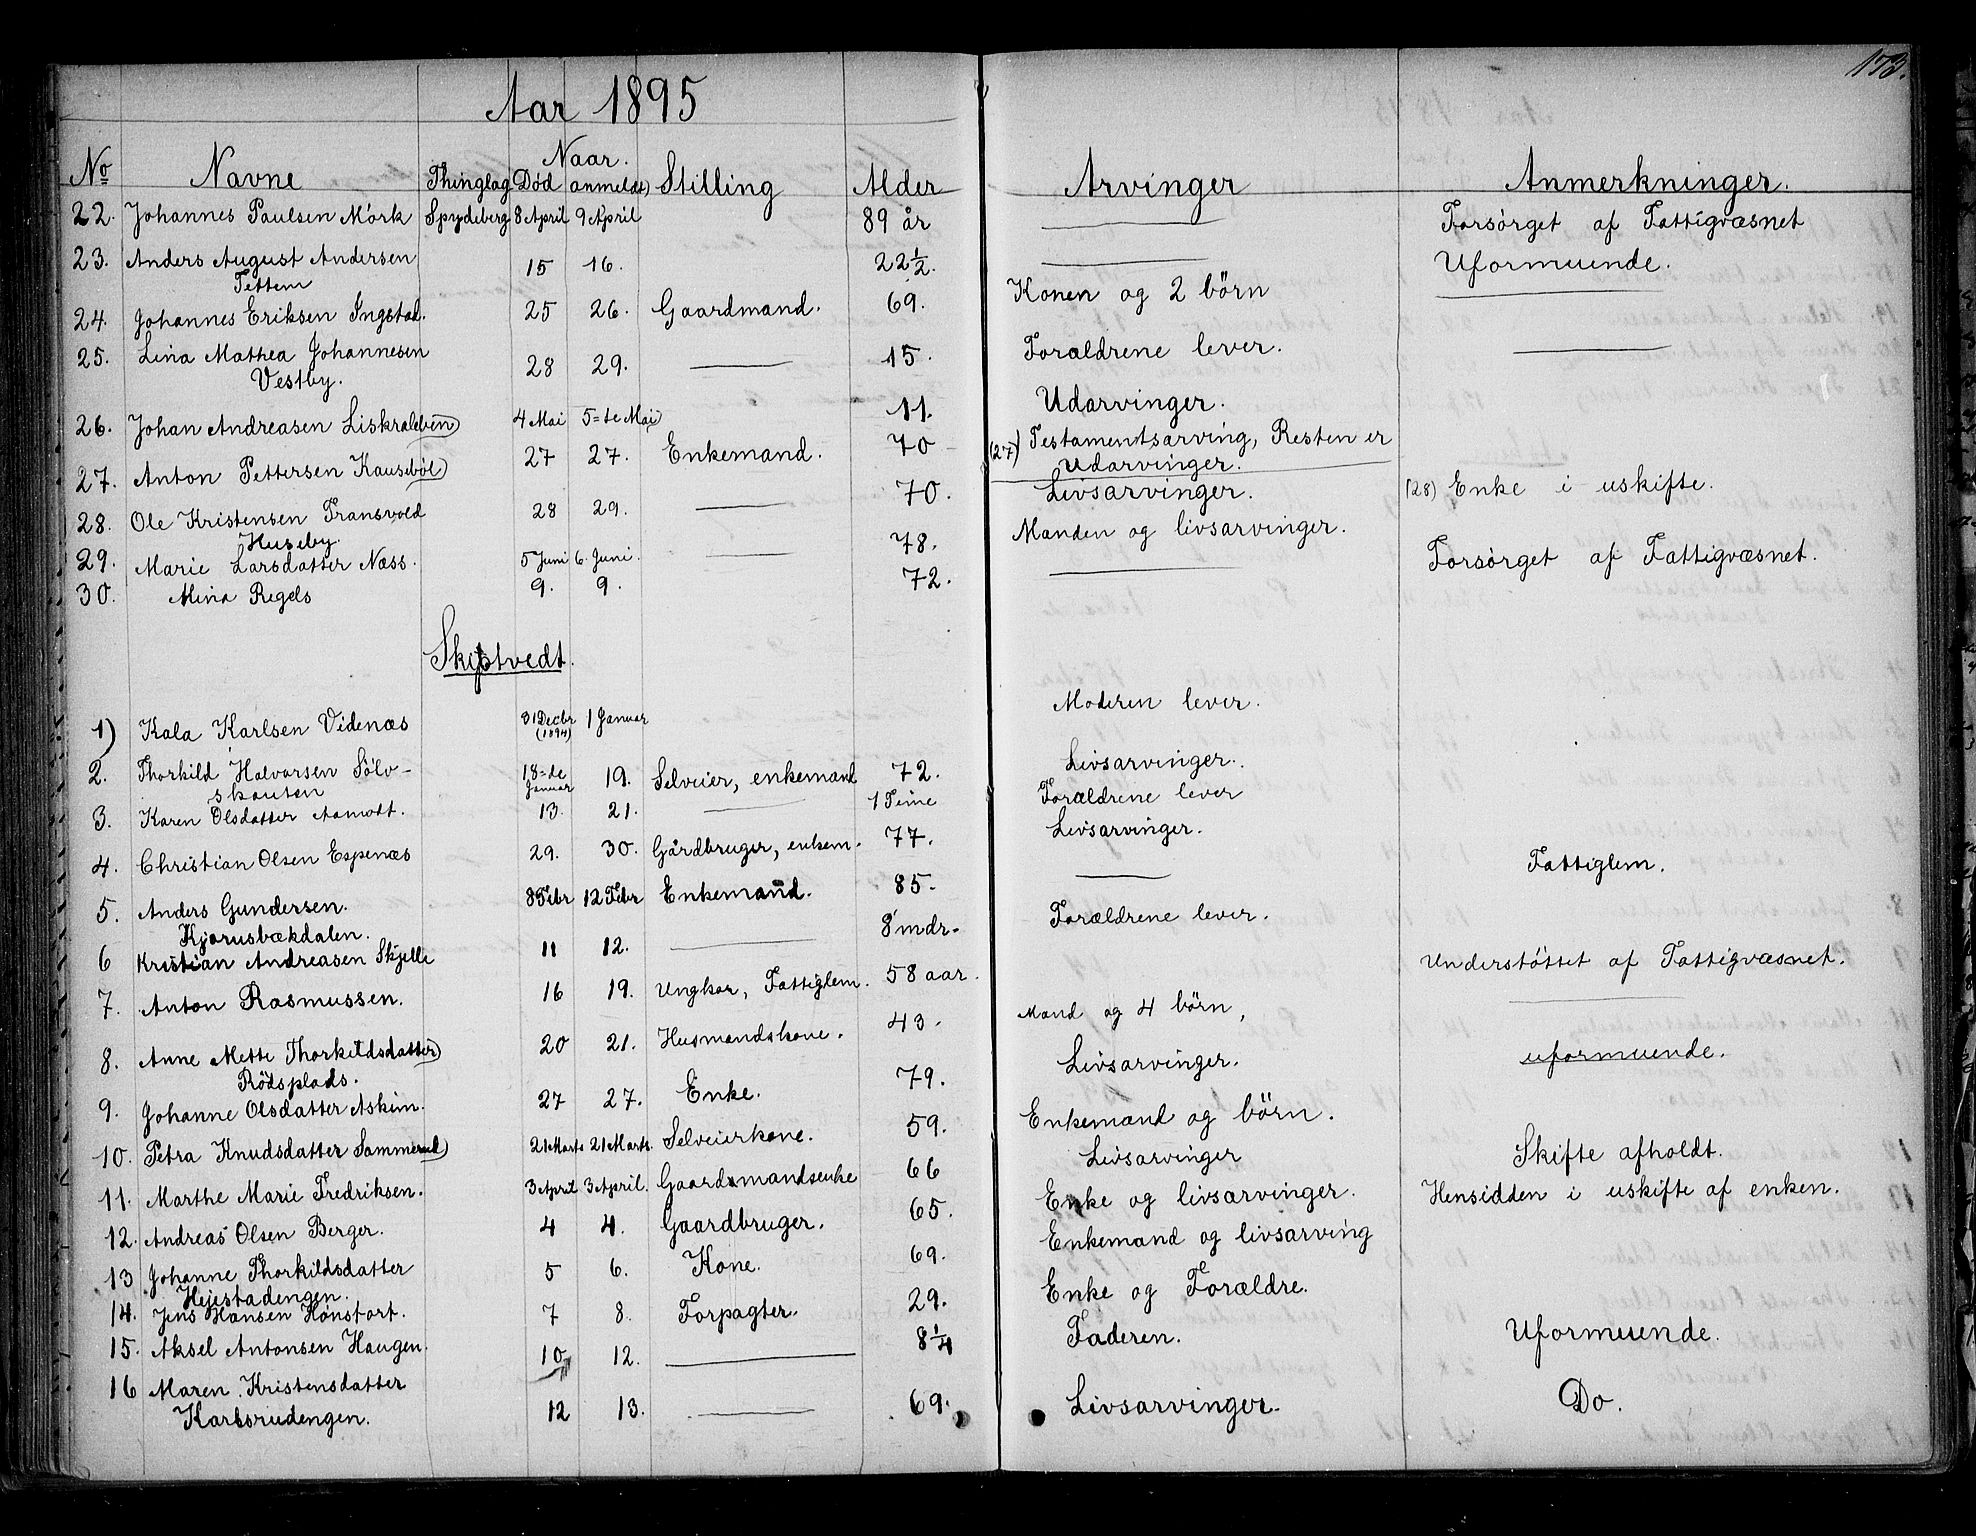 173.
Aar 1895
No Navne Thinglag Naar. Død anmeldt) Stilling Alder Arvinger Anmerkninger.
22. Johannes Paulsen Mörk Spydeberg 8 April 9 April 89 år Forsörget af Fattigvæsnet
23. Anders August Andersen 15 16. 22½. Uformuende.
Tettem
24. Johannes Eriksen Ingstad. 25 26. Gaardmand. 69. Konen og 2 börn
25. Lina Mathea Johannesen 28 29. 15. Forældrene lever.
Vestby.
26. Johan Andreasen Liskraleben) 4 Mai 5=te Mai) 11. Udarvinger.
27. Anton Pettersen Kauseböl) 27 27. Enkemand. 70 (27) Testamentsarving, Resten er
Udarvinger.
28. Ole Kristensen Transvold 28 29. 70. Livsarvinger. (28) Enke i uskifte.
Huseby.
29. Marie Larsdatter Næss. 5 Juni 6. Juni. 78. Manden og livsarvinger.
30. Mina Regels 9. 9. 72. Forsörget af Fattigvæsnet.
Skiptvedt.
1) Kala Karlsen Videnæs 31 Decbr (1894) 1 Januar Moderen lever.
2. Thorkild Halvorsen Sölv- 18=de Januar 19. Selveier, enkemand 72. Livsarvinger.
skouten
3. Karen Olsdatter Aamodt. 13. 21. 1 Time Forældrene lever
4. Christian Olsen Espenæs 29. 30. Gårdbruger, enkem. 77. Livsarvinger.
5. Anders Gundersen. 8 Febr 12 Febr Enkemand. 85. Fattiglem.
Kjorusbækdalen.
6 Kristian Andreasen Skjelle 11 12. 8 mdr. Forældrene lever.
7. Anton Rasmussen. 16 19. Ungkar, Fattiglem. 58 aar. Understöttet af Fattigvæsnet.
8. Anne Mette Thorkildsdatter) 20 21. Husmandskone. 43. Mand og 4 börn,
Rödsplads.
9. Johanne Olsdatter Askim. 27 27. Enke. 79. Livsarvinger. uformuende.
10. Petra Knudsdatter Sommerud) 21 Marts 21 Marts. Selveierkone. 59. Enkemand og börn.
11. Marthe Marie Fredriksen. 3 April 3 April. Gaardmandsenke 66 Livsarvinger Skifte afholdt.
12. Andreas Olsen Berger. 4 4. Gaardbruger. 65. Enke og livsarvinger. Hensidden i uskifte af enken.
13 Johanne Thorkildsdatter 5 6. Kone. 69. Enkemand og livsarving
Hejestadengen.
14. Jens Hansen Hönstorf. 7 8. Forpagter. 29. Enke og Forældre.
15. Aksel Antonsen Haugen. 10 12. 8¼ Faderen. Uformuende.
16 Maren Kristensdatter 12 13. 69. Livsarvinger. Do.
Karlsrudengen.